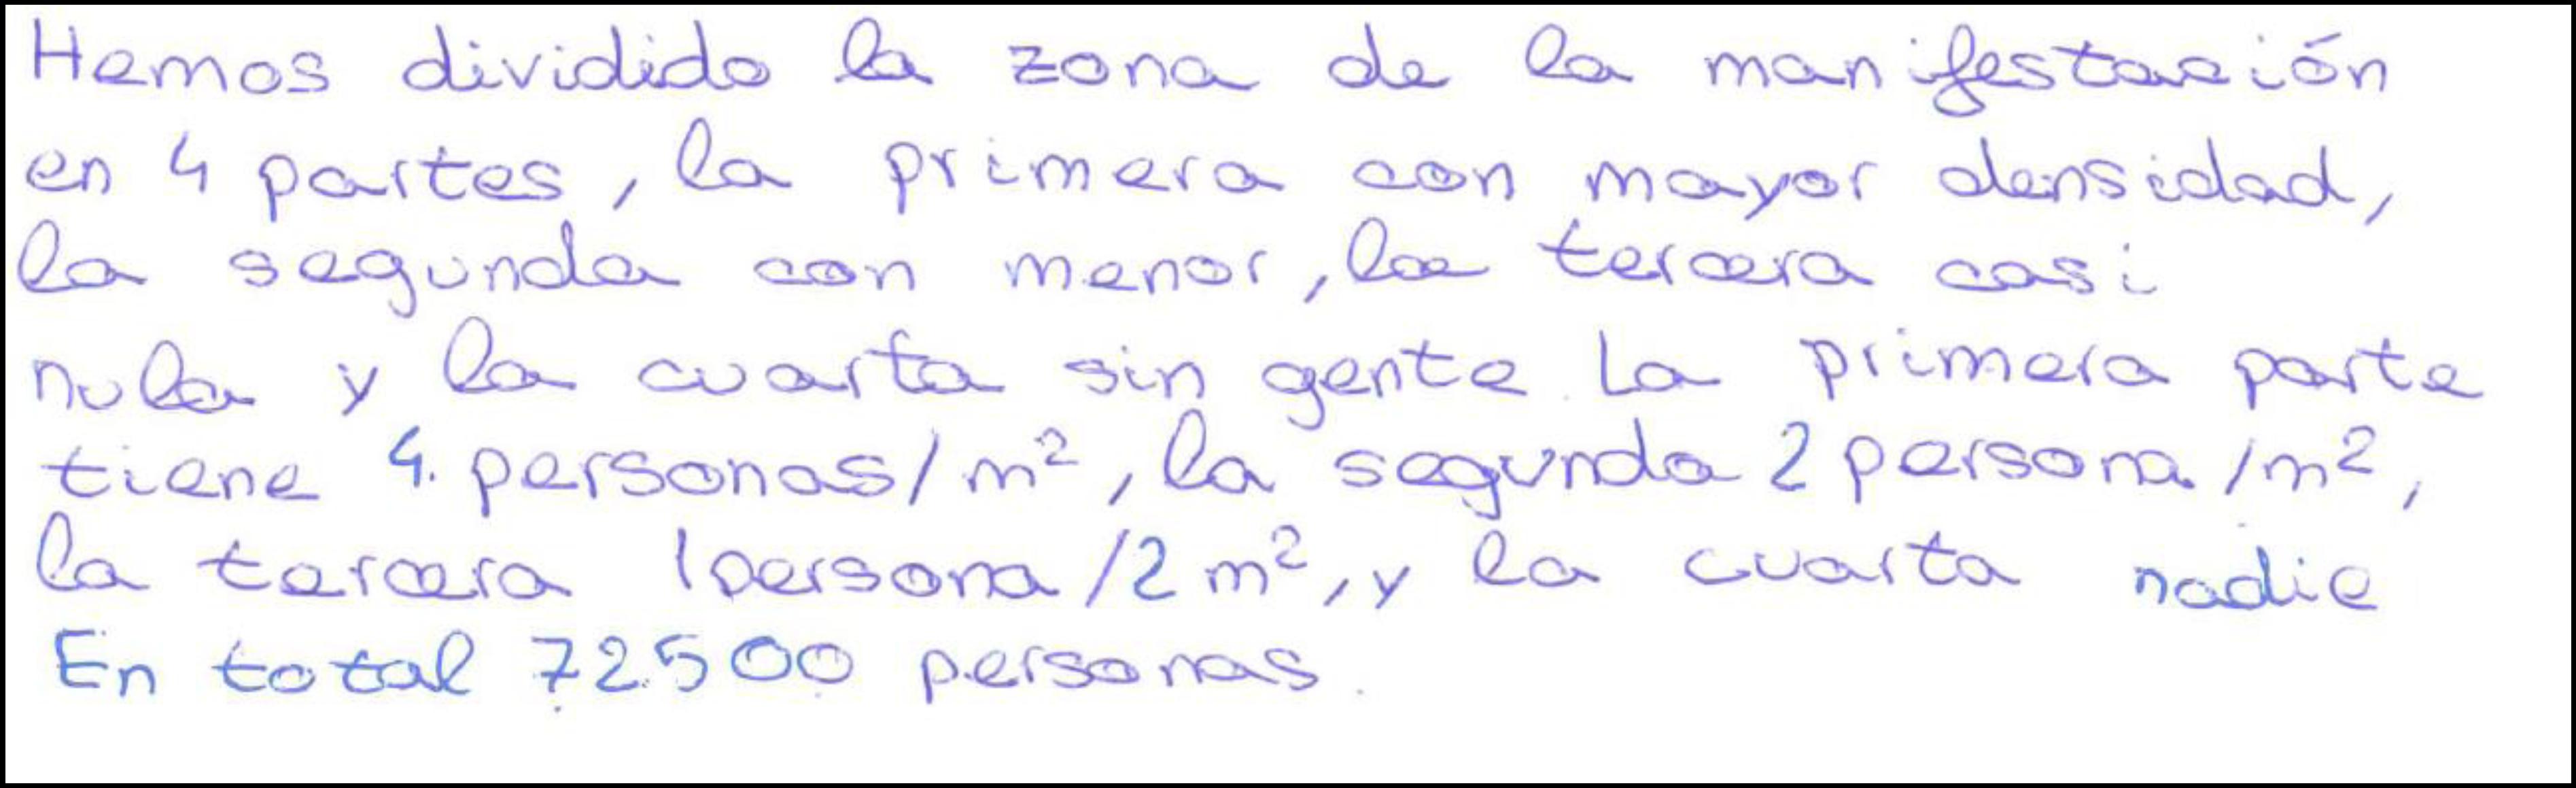 Hemos dividido la zona de la manifestación
en 4 partes, la primera con mayor densidad,
la segunda con menor, la tercera casi
nula y la cuarta sin gente. La primera parte
tiene 4 personas/m², la segunda 2 persona/m²,
la tercera 1persona/2m², y la cuarta nadie
En total 72.500 personas.